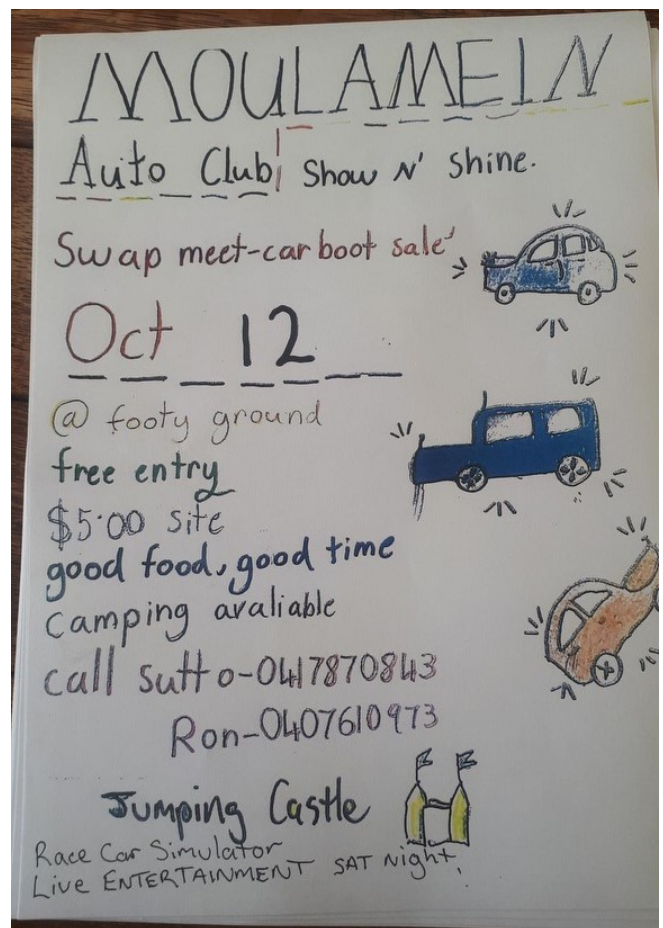 MOULAMEIN
Auto Club! Show N' Shine.
Swap meet-car boot sale'
Oct 12
@ footy ground
free entry
$5.00 site
good food, good time
camping avaliable
call sutto-0417870843
Ron-0407610973
Jumping Castle
Race Car Simulator
Live ENTERTAINMENT SAT Night.